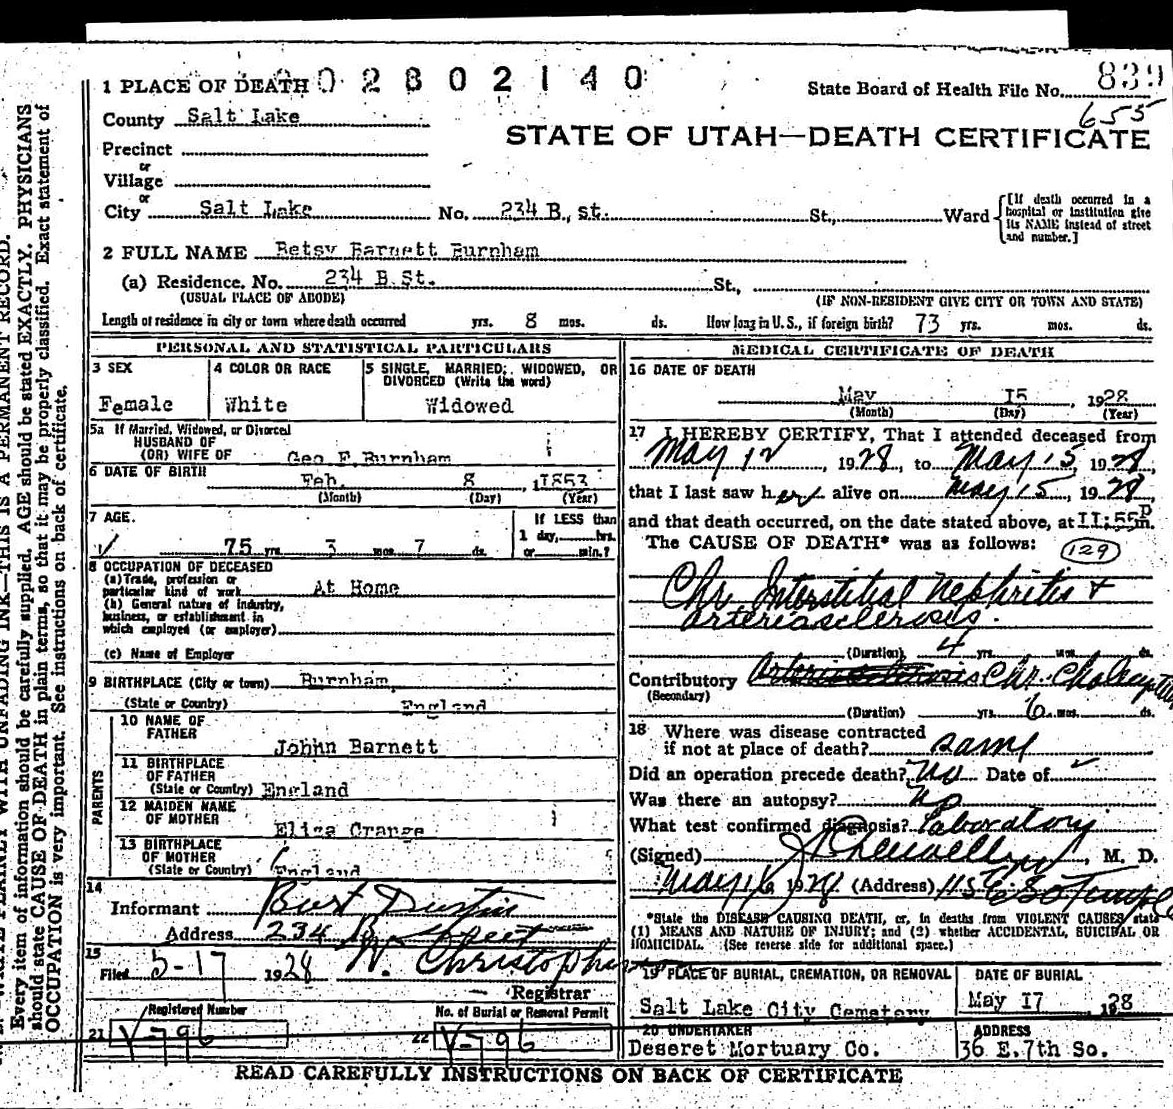 1 PLACE OF DEATH 0 2 8 0 2 1 4 0
State Board of Health File No. 839
655
County Salt Lake
STATE OF UTAH—DEATH CERTIFICATE
Precinct
or
Village
or
City Salt Lake No. 234 B., st. St., Ward
[If death occurred in a hospital or institution give its NAME instead of street and number.]
2 FULL NAME Betsy Barnett Burnham
(a) Residence. No. 234 B.St. St.,
(USUAL PLACE OF ABODE) (IF NON-RESIDENT GIVE CITY OR TOWN AND STATE)
Length of residence in city or town where death occurred yrs. 8 mos. ds. How long in U. S., if foreign birth? 73 yrs. mos. ds.
PERSONAL AND STATISTICAL PARTICULARS
3 SEX
Female
4 COLOR OR RACE
White
5 SINGLE, MARRIED, WIDOWED, OR
DIVORCED (Write the word)
Widowed
5a If Married, Widowed, or Divorced
HUSBAND OF
(OR) WIFE OF Geo F. Burnham
6 DATE OF BIRTH Feb. 8 1853
(Month) (Day) (Year)
7 AGE.
75 yrs. 3 mos. 7 ds.
If LESS than
1 day, hrs.
or min.?
8 OCCUPATION OF DECEASED
(a) Trade, profession or
particular kind of work At Home
(b) General nature of industry,
business, or establishment in
which employed (or employer)
(c) Name of Employer
9 BIRTHPLACE (City or town) Burnham,
(State or Country) England
PARENTS
10 NAME OF
FATHER
Johhn Barnett
11 BIRTHPLACE
OF FATHER
(State or Country) England
12 MAIDEN NAME
OF MOTHER
Eliza Orange
13 BIRTHPLACE
OF MOTHER
(State or Country) England
14
Informant Burt Dustin
Address 234 B Street
15
Filed 5-17 1928
Registrar
Registered Number
21 V-796
No. of Burial or Removal Permit
22 V-796
MEDICAL CERTIFICATE OF DEATH
16 DATE OF DEATH
May I5 , 1928
(Month) (Day) (Year)
17 I HEREBY CERTIFY, That I attended deceased from
May 12 , 1928, to May 15, 1928,
that I last saw her alive on May 15, 1928,
and that death occurred, on the date stated above, at II:55P m.
The CAUSE OF DEATH* was as follows: 129
Chr Interstitial Nephritis +
arteriasclerosis.
(Duration) 4 yrs. mos. ds.
Contributory Arteriosclerosis Chr.
(Secondary)
(Duration) yrs. 6 mos. ds.
18 Where was disease contracted
if not at place of death? same
Did an operation precede death? No Date of
Was there an autopsy? no
What test confirmed diagnosis? Laboratory
(Signed) , M. D.
May 16 1928 (Address) 115 E So Temple
*State the DISEASE CAUSING DEATH, or, in deaths from VIOLENT CAUSES state
(1) MEANS AND NATURE OF INJURY; and (2) whether ACCIDENTAL, SUICIDAL OR
HOMICIDAL. (See reverse side for additional space.)
19 PLACE OF BURIAL, CREMATION, OR REMOVAL
Salt Lake City Cemetery
DATE OF BURIAL
May I7 1928
20 UNDERTAKER
Deseret Mortuary Co.
ADDRESS
36 E.7th So.
READ CAREFULLY INSTRUCTIONS ON BACK OF CERTIFICATE
WRITE PLAINLY WITH UNFADING INK—THIS IS A PERMANENT RECORD.
Every item of information should be carefully supplied. AGE should be stated EXACTLY. PHYSICIANS
should state CAUSE OF DEATH in plain terms, so that it may be properly classified. Exact statement of
OCCUPATION is very important. See instructions on back of certificate.